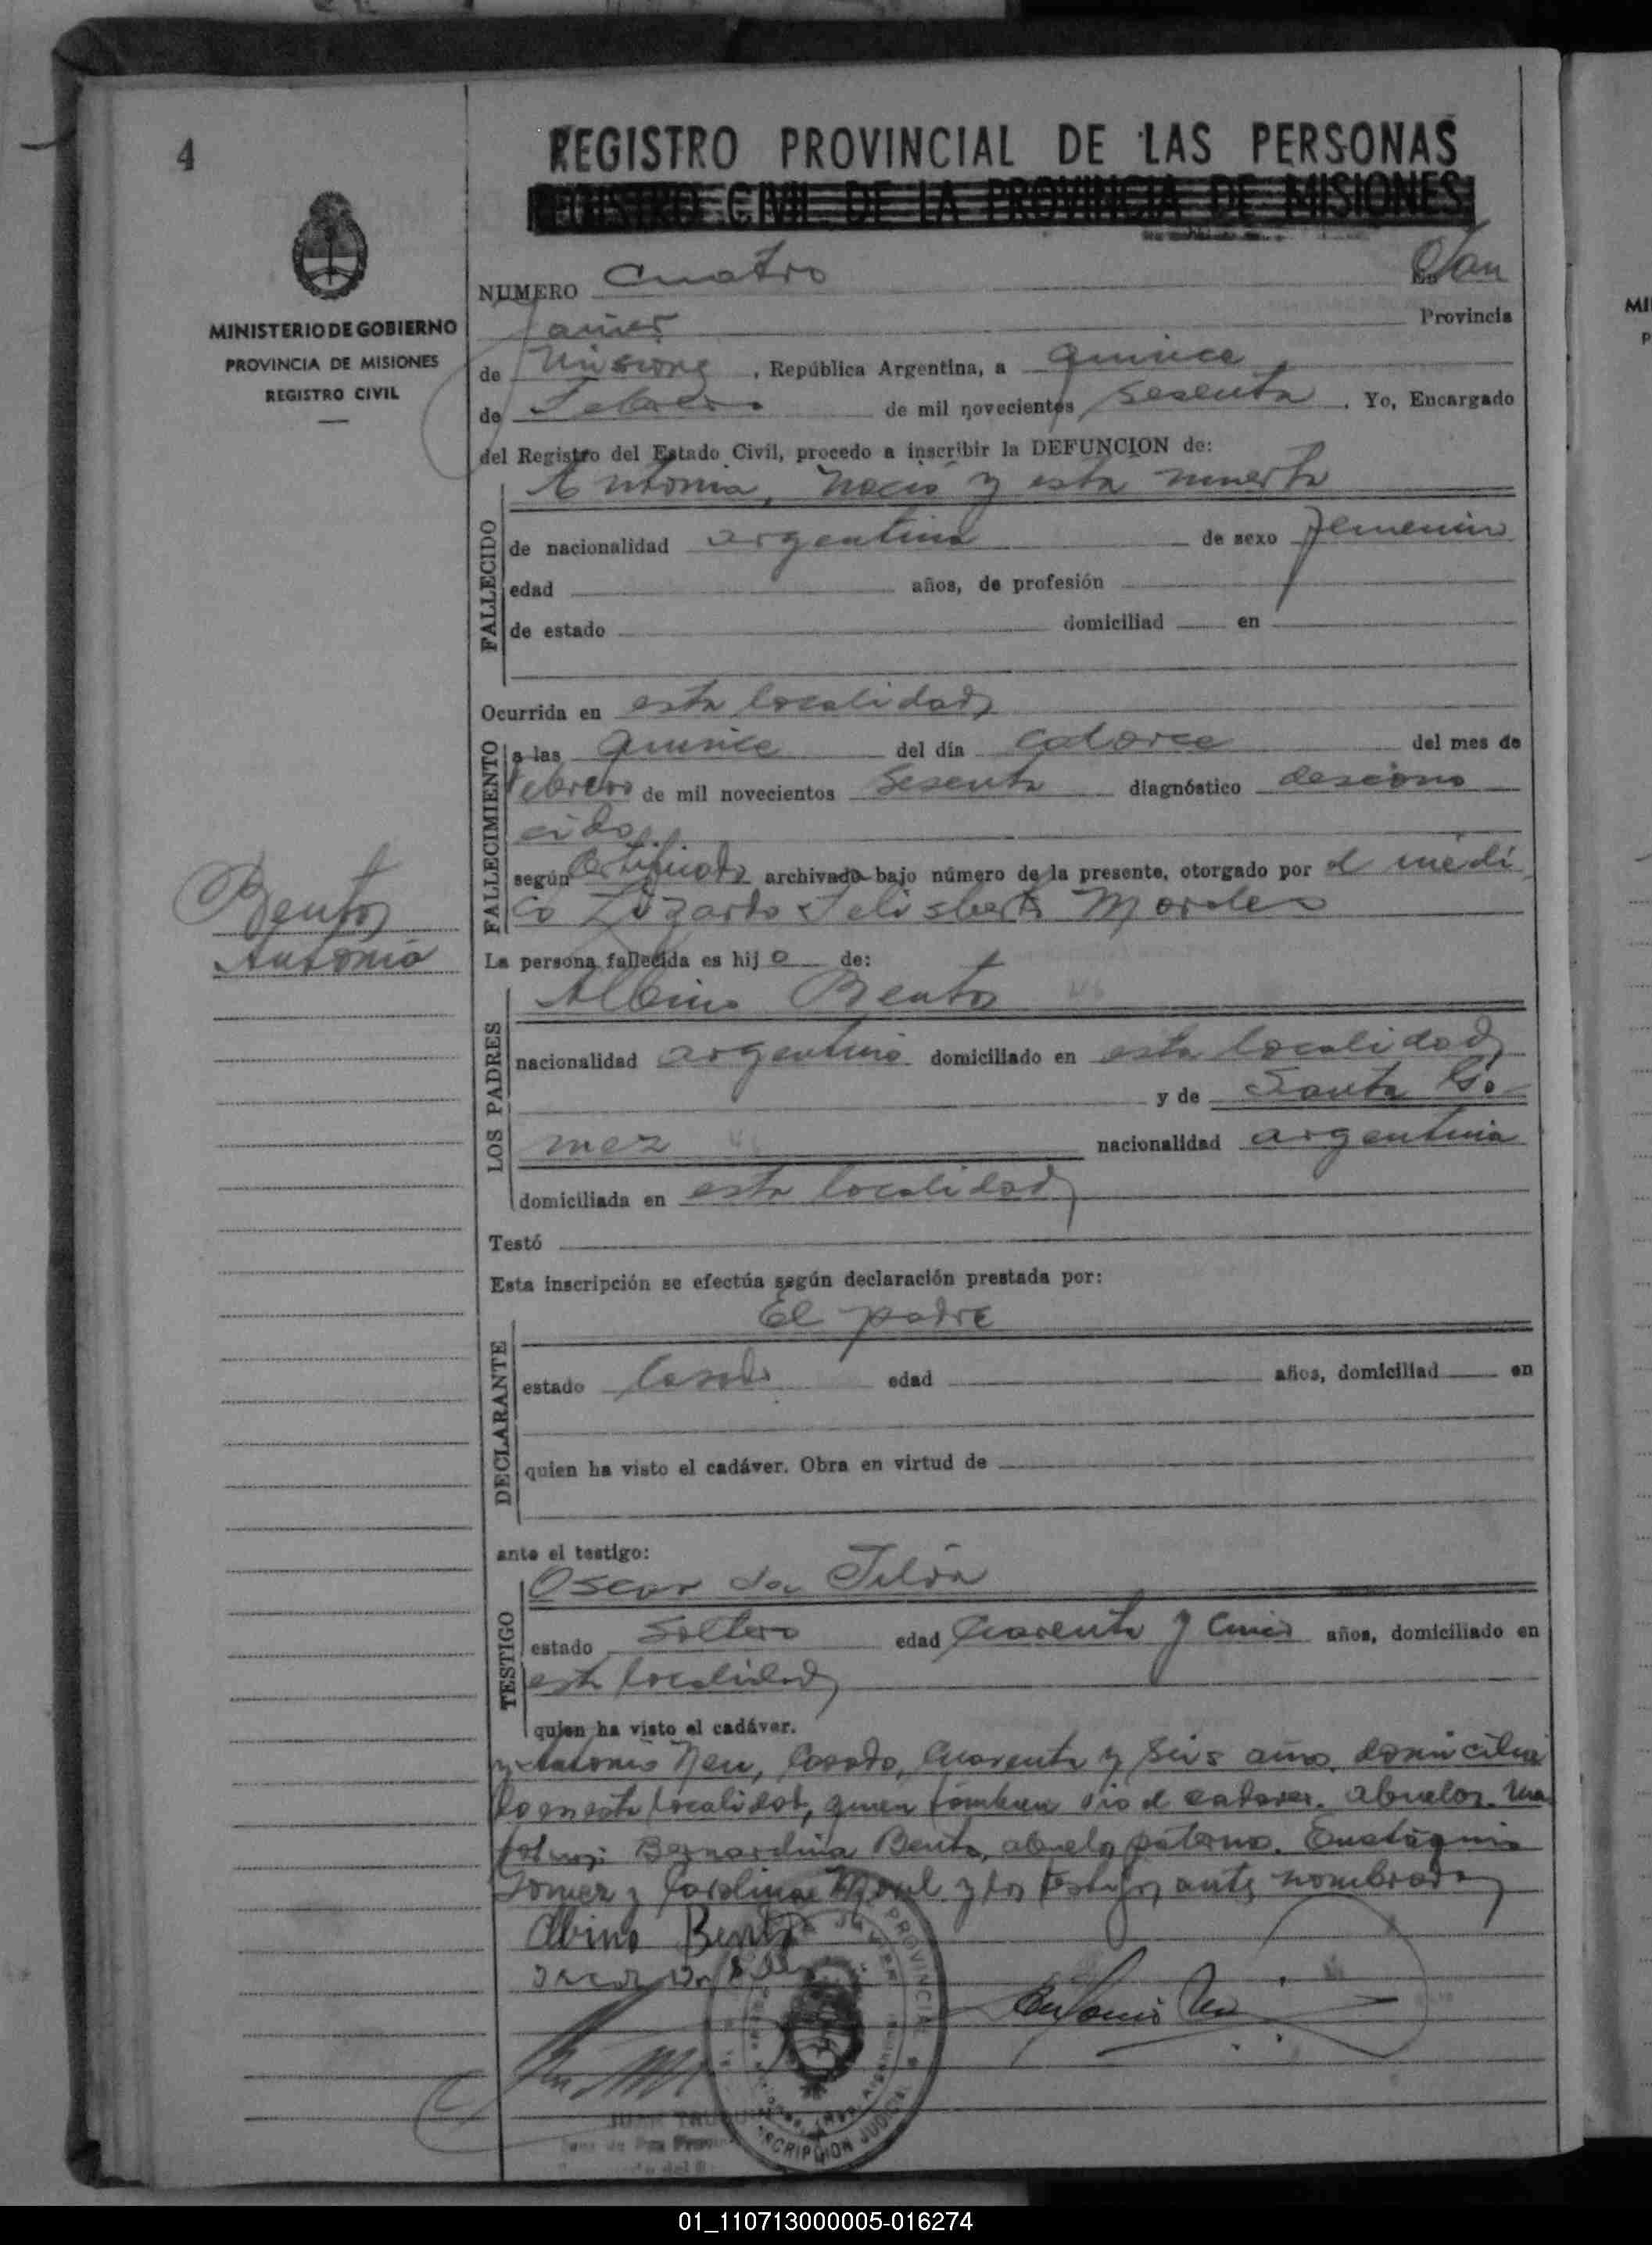 4
MINISTERIO DE GOBIERNO
PROVINCIA DE MISIONES
REGISTRO CIVIL
Bentos
Antonia
REGISTRO PROVINCIAL DE LAS PERSONAS
REGISTRO CIVIL DE LA PROVINCIA DE MISIONES
NUMERO Cuatro En San
Javier Provincia
de Misiones, República Argentina, a quince
de Febrero de mil novecientos sesenta. Yo, Encargado
del Registro del Estado Civil, procedo a inscribir la DEFUNCION de:
Antonia, nació y esta muerta
FALLECIDO
de nacionalidad argentina de sexo femenino
edad años, de profesión
de estado domiciliad en
Ocurrida en esta localidad
FALLECIMIENTO
a las quince del día catorce del mes de
Febrero de mil novecientos sesenta diagnóstico descono
cido
según Certificado archivado bajo número de la presente, otorgado por el médi
co Lizardo Morales
La persona fallecida es hij a de:
LOS PADRES
Albino Bentos
nacionalidad argentino domiciliado en esta localidad
y de Santa Go
mez nacionalidad argentina
domiciliada en esta localidad
Testó
Esta inscripción se efectúa según declaración prestada por:
El padre
DECLARANTE
estado Casado edad años, domiciliad en
quien ha visto el cadáver. Obra en virtud de
ante el testigo:
Oscar da Silva
TESTIGO
estado Soltero edad Cuarenta y Cinco años, domiciliado en
esta localidad
quien ha visto el cadáver.
y Antonio Neu, Casado, Cuarenta y Seis años, domicilia
do en esta localidad, quien tambien vio el cadaver. abuelos
Bernardina Bento, abuela paterna.
Gomez y Carolina y los testigos antes nombrados
Albino Bento
Antonio
JUAN
Juez de Paz
PROVINCIAL
INSCRIPCION JUDICIAL
01_110713000005-016274